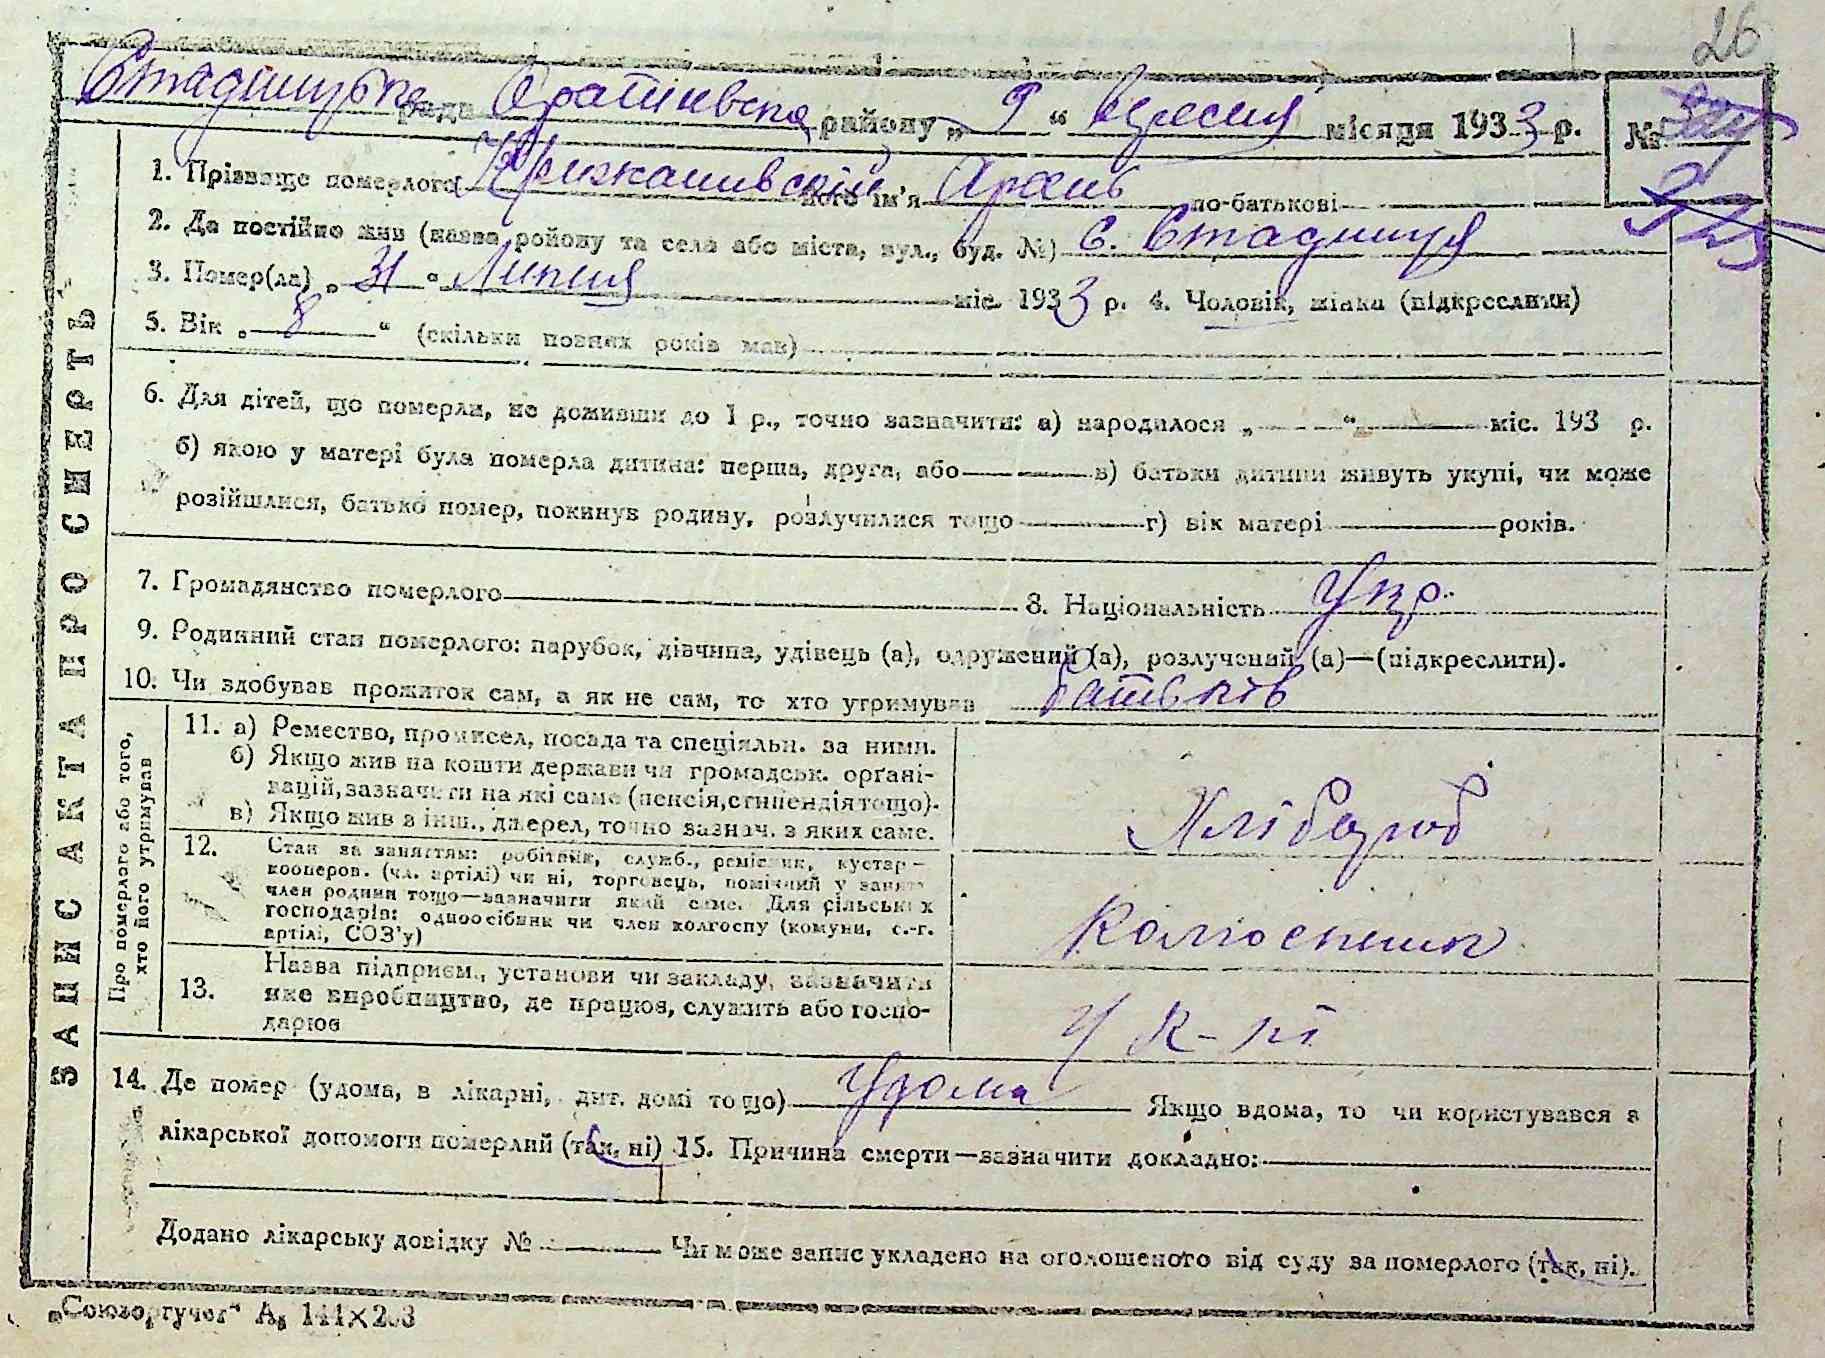 26
Стадницька рада Оратівська району „ 9 “ вересня місяця 1933 р. №
1. Прізвище померлого Крижанивский його ім'я Архип по-батькові
2. Де постійно жив (назва району та села або міста, вул., буд. №) с. Стадниця
3. Помер(ла) „ 31 “ Липня міс. 1933 р. 4. Чоловік, жінка (підкреслити)
5. Вік „ 8 “ (скільки повних років мав)
6. Для дітей, що померли, не доживши до 1 р., точно зазначити: а) народилося „ “ міс. 193 р.
б) якою у матері була померла дитина: перша, друга, або в) батьки дитини живуть укупі, чи може
розійшлися, батько помер, покинув родину, розлучилися тощо г) вік матері років.
7. Громадянство померлого 8. Національність Укр.
9. Родинний стан померлого: парубок, дівчина, удівець (а), одружений (а), розлучений (а)—(підкреслити).
10. Чи здобував прожиток сам, а як не сам, то хто утримував батьків
ЗАПИС АКТА ПРО СМЕРТЬ
Про померлого або того, хто його утримував
11. а) Ремество, промисел, посада та спеціяльн. за ними.
б) Якщо жив на кошти держави чи громадськ. органі-
зацій, зазначити на які саме (пенсія, стипендія тощо).
в) Якщо жив з інш., джерел, точно зазнач. з яких саме.
Хлібороб
12. Стан за заняттям: робітник, служб., ремісник, кустар—
кооперов. (чл. артілі) чи ні, торговець, помічний у занят.
член родини тощо—зазначити який саме. Для сільських
господарів: одноосібник чи член колгоспу (комуни, с.-г.
артілі, СОЗ'у)
Колгоспник
13. Назва підприєм., установи чи закладу, зазначити
яке виробництво, де працює, служить або госпо-
дарює
У к-пі
14. Де помер (удома, в лікарні, дит. домі тощо) Удома Якщо вдома, то чи користувався з
лікарської допомоги померлий (так, ні) 15. Причина смерти—зазначити докладно:
Додано лікарську довідку № Чи може запис укладено на оголошеного від суду за померлого (так, ні).
„Союзоргучет“ А₅ 144×203